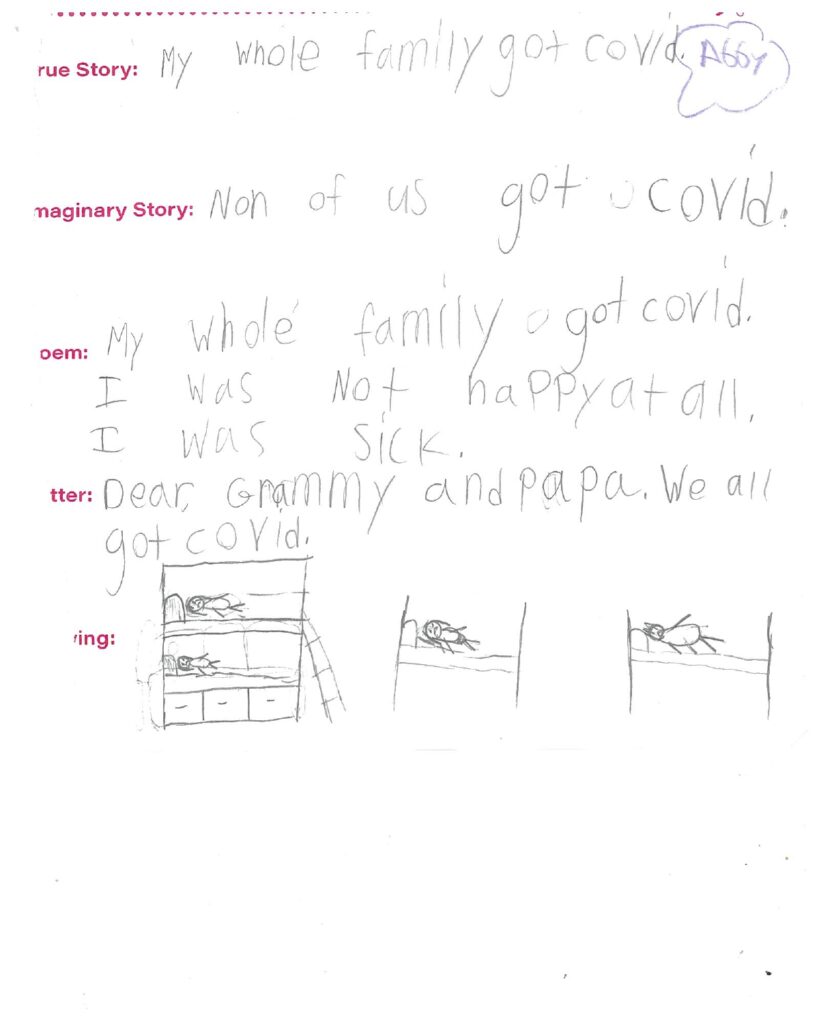 rue Story: My whole family got covid.
Abby
maginary Story: Non of us got covid.
oem: My whole family got covid.
I was Not happy at all.
I was sick.
tter: Dear, Grammy and papa. We all
got covid.
ving: